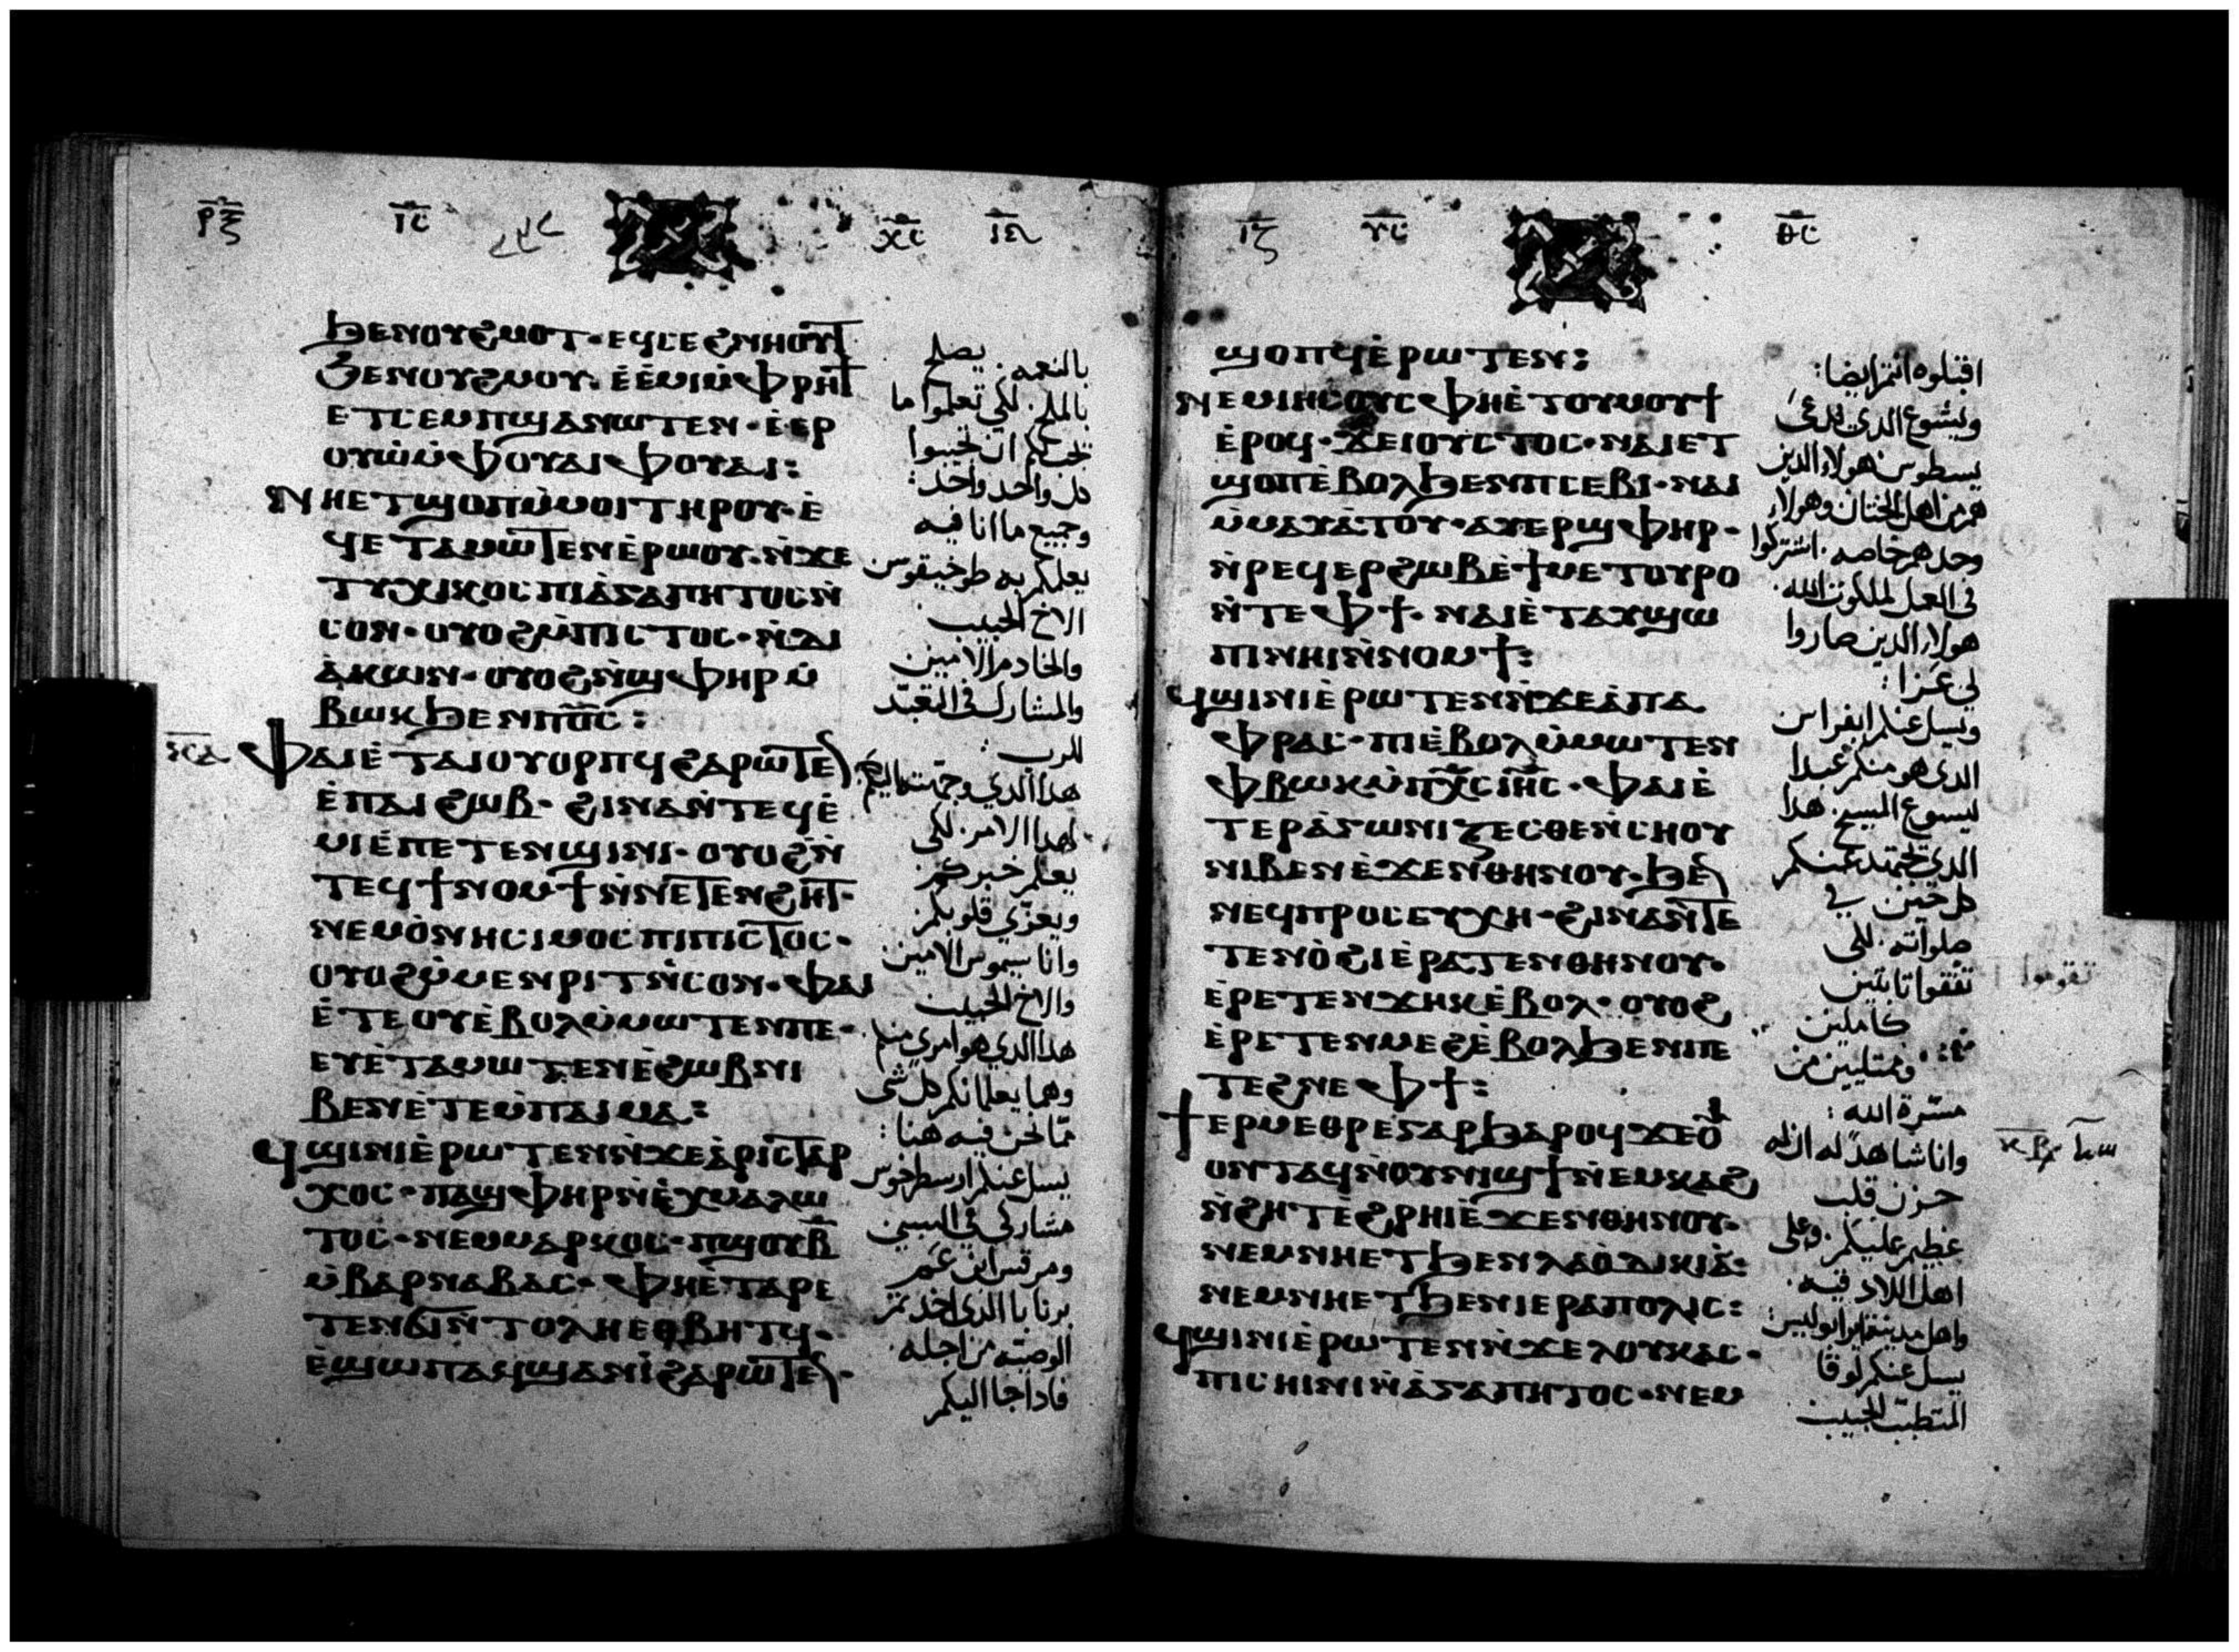 ⲣⲝ ⲓⲥ ⲭⲥ ⲓⲉ
ϧⲉⲛⲟⲩϩⲙⲟⲧ· ⲉϥⲥⲉϩⲛⲏⲟⲩϯ
ϧⲉⲛⲟⲩϩⲙⲟⲩ· ⲉ̀ⲉ̀ⲙⲓⲙ̀ⲫⲣⲏϯ
ⲉⲧⲥⲉⲙⲡϣⲁⲛⲱⲧⲉⲛ· ⲉ̀ⲉⲣ
ⲟⲩⲱ̀ⲙ̀ⲫⲟⲩⲁⲓⲫⲟⲩⲁⲓ:
ⲛⲏⲉⲧϣⲟⲡⲙ̀ⲙⲟⲓⲧⲏⲣⲟⲩ· ⲉ̀
ϥⲉⲧⲁⲙⲱⲧⲉⲛⲉ̀ⲣⲱⲟⲩ· ⲛ̀ϫⲉ
ⲧⲩⲭⲓⲕⲟⲥⲡⲓⲁ̀ⲅⲁⲡⲏⲧⲟⲥⲛ̀
ⲥⲟⲛ· ⲟⲩⲟϩⲙ̀ⲡⲓⲥⲧⲟⲥ· ⲛ̀ⲇⲓ
ⲁ̀ⲕⲱⲛ· ⲟⲩⲟϩⲛ̀ϣⲫⲏⲣⲙ̀
ⲃⲱⲕϧⲉⲛⲡⲟ̅ⲥ̅:
ⲫⲁⲓⲉ̀ⲧⲁⲓⲟⲩⲟⲣⲡϥϩⲁⲣⲱⲧⲉ
ⲉ̀ⲡⲁⲓϩⲱⲃ· ϩⲓⲛⲁⲛ̀ⲧⲉϥⲉ̀
ⲙⲓⲉ̀ⲡⲉⲧⲉⲛϣⲓⲛⲓ· ⲟⲩⲟϩⲛ̀
ⲧⲉϥϯⲛⲟⲙϯⲛ̀ⲛⲉⲧⲉⲛϩⲏⲧ·
ⲛⲉⲙⲟ̀ⲛⲏⲥⲓⲙⲟⲥⲡⲓⲡⲓⲥⲧⲟⲥ·
ⲟⲩⲟϩⲙ̀ⲙⲉⲛⲣⲓⲧⲛ̀ⲥⲟⲛ· ⲫⲁⲓ
ⲉ̀ⲧⲉⲟⲩⲉ̀ⲃⲟⲗⲙ̀ⲙⲱⲧⲉⲛⲡⲉ·
ⲉⲩⲉ̀ⲧⲁⲙⲱⲧⲉⲛⲉ̀ϩⲱⲃⲛⲓ
ⲃⲉⲛⲉ̀ⲧⲉⲙ̀ⲡⲁⲓⲙⲁ:
ϥϣⲓⲛⲓⲉ̀ⲣⲱⲧⲉⲛⲛ̀ϫⲉⲁ̀ⲣⲓⲥⲧⲁⲣ
ⲭⲟⲥ· ⲡⲁϣⲫⲏⲣⲛ̀ⲉ̀ⲭⲙⲁⲗⲱ
ⲧⲟⲥ· ⲛⲉⲙⲙⲁⲣⲕⲟⲥ· ⲡϣⲟⲩⲃ
ⲙ̀ⲃⲁⲣⲛⲁⲃⲁⲥ· ⲫⲏⲉ̀ⲧⲁⲣⲉ
ⲧⲉⲛϭⲓⲛ̀ⲧⲟⲗⲏⲉⲑⲃⲏⲧϥ·
ⲉ̀ϣⲱⲡⲁϥϣⲁⲛⲓ̀ϩⲁⲣⲱⲧⲉ·
بالنعمه. يصلح
بالملح. لكى تعلموا ما
يجب لكم ان تجيبوا
كل واحد واحد:
وجميع ما انا فيه
يعلمكم به طوخيقوس
الاخ الحبيب
والخادم الامين
والمشارك فى التعبّد
للرب:
هذا الذي وجهت به اليكم
لهذا الامر. لكى
يعلم خبركم
ويعزّي قلوبكم
وانا سيموس الامين
والاخ الحبيب
هذا الذي هو امرئ منكم
وهما يعلمانكم كل شى
ممّا نحن فيه هنا:
يسل عنكم ارسطرخوس
مشاركى فى السبى
ومرقس ابن عم
برنابا الذى اخذتم
الوصيّه من اجله.
فاذا جا اليكم
ⲓⲍ ⲩⲥ ⲑⲥ
ϣⲟⲡϥⲉ̀ⲣⲱⲧⲉⲛ:
ⲛⲉⲙⲓⲏⲥⲟⲩⲥⲫⲏⲉ̀ⲧⲟⲩⲙⲟⲩϯ
ⲉ̀ⲣⲟϥ· ϫⲉⲓⲟⲩⲥⲧⲟⲥ· ⲛⲁⲓⲉⲧ
ϣⲟⲡⲉ̀ⲃⲟⲗϧⲉⲛⲡⲥⲉⲃⲓ· ⲛⲁⲓ
ⲙ̀ⲙⲁⲩⲁ̀ⲧⲟⲩ· ⲁⲩⲉⲣϣⲫⲏⲣ·
ⲛ̀ⲣⲉϥⲉⲣϩⲱⲃⲉ̀ϯⲙⲉⲧⲟⲩⲣⲟ
ⲛ̀ⲧⲉⲫϯ· ⲛⲁⲓⲉ̀ⲧⲁⲩϣⲱ
ⲡⲓⲛⲏⲓⲛ̀ⲛⲟⲙϯ:
ϥϣⲓⲛⲓⲉ̀ⲣⲱⲧⲉⲛⲛ̀ϫⲉⲁ̀ⲡⲁ
ⲫⲣⲁⲥ· ⲡⲓⲉ̀ⲃⲟⲗⲙ̀ⲙⲱⲧⲉⲛ
ⲫⲃⲱⲕⲙ̀ⲡⲭ̅ⲥ̅ⲓⲏ̅ⲥ̅· ⲫⲁⲓⲉ̀
ⲧⲉⲣⲁ̀ⲅⲱⲛⲓⲍⲉⲥⲑⲉⲛ̀ⲥⲏⲟⲩ
ⲛⲓⲃⲉⲛⲉ̀ϫⲉⲛⲑⲏⲛⲟⲩ· ϧⲉ
ⲛⲉϥⲡⲣⲟⲥⲉⲩⲭⲏ· ϩⲓⲛⲁⲛ̀ⲧⲉ
ⲧⲉⲛⲟ̀ϩⲓⲉ̀ⲣⲁⲧⲉⲛⲑⲏⲛⲟⲩ·
ⲉ̀ⲣⲉⲧⲉⲛϫⲏⲕⲉ̀ⲃⲟⲗ· ⲟⲩⲟϩ
ⲉ̀ⲣⲉⲧⲉⲛⲙⲉϩⲉ̀ⲃⲟⲗϧⲉⲛⲡⲉ
ⲧⲉϩⲛⲉⲫϯ:
ϯⲉⲣⲙⲉⲑⲣⲉⲅⲁⲣϧⲁⲣⲟϥϫⲉⲟ̀
ⲟⲛⲧⲁϥⲛ̀ⲟⲩⲛⲓϣϯⲛ̀ⲉⲙⲕⲁϩ
ⲛ̀ϩⲏⲧⲉ̀ϩⲣⲏⲓⲉ̀ϫⲉⲛⲑⲏⲛⲟⲩ·
ⲛⲉⲙⲛⲏⲉⲧϧⲉⲛⲗⲁⲟ̀ⲇⲓⲕⲓⲁ̀:
ⲛⲉⲙⲛⲏⲉⲧϧⲉⲛⲓⲉⲣⲁⲡⲟⲗⲓⲥ:
ϥϣⲓⲛⲓⲉ̀ⲣⲱⲧⲉⲛⲛ̀ϫⲉⲗⲟⲩⲕⲁⲥ·
ⲡⲓⲥⲏⲓⲛⲓⲛ̀ⲁ̀ⲅⲁⲡⲏⲧⲟⲥ· ⲛⲉⲙ
اقبلوه انتم ايضا:
ويشوع الذى يدعى
يسطوس هولاء الذين
هم من اهل الختان وهولاء
وحدهم خاصه. اشتركوا
فى العمل لملكوت الله.
هولاء الذين صاروا
لى عزا:
ويسل عنكم ابفراس
الذى هو منكم عبدا
ليسوع المسيح. هذا
الذى يجتهد عنكم
كل حين فى
صلواته. لكى
تقفوا ثابتين
تقوموا
كاملين
وممتليين من
مسّرة الله:
وانا شاهد له ان له
حزن قلب
عظيم عليكم. وعلى
اهل اللادقيه.
واهل مدينة ايرابوليس:
يسل عنكم لوقا
المتطبّب الحبيب